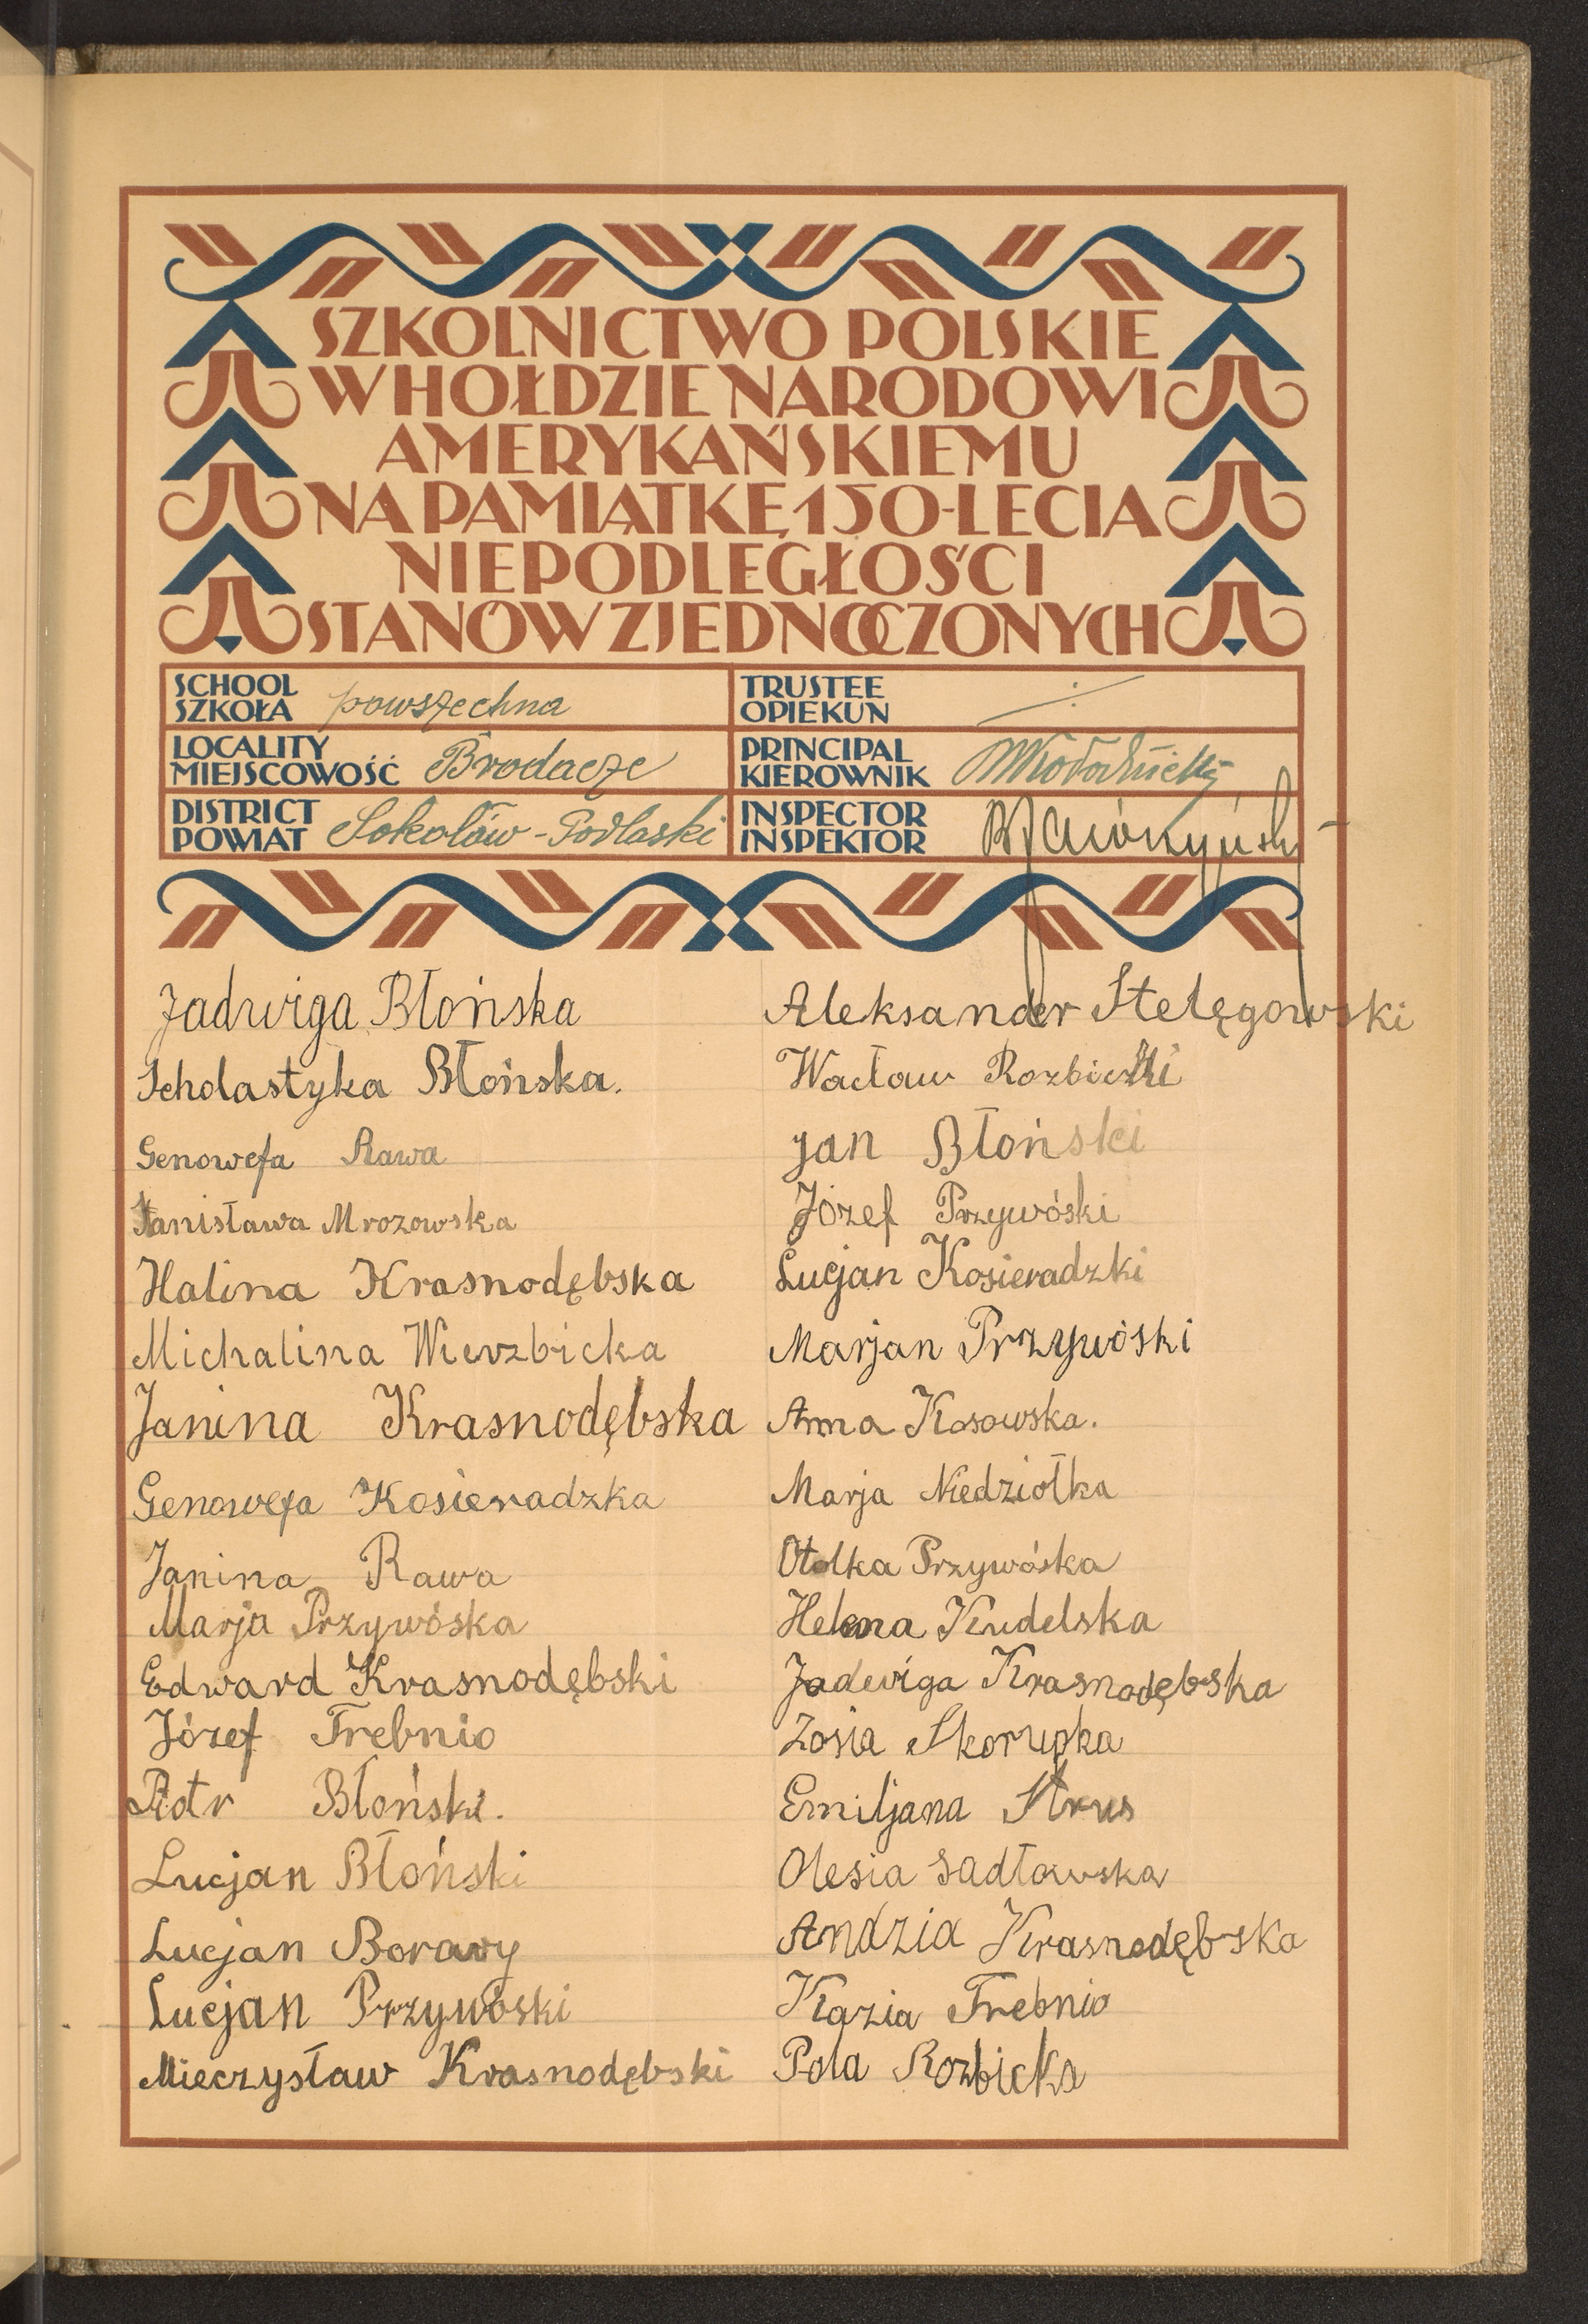 SZKOLNICTWO POLSKIE
W HOŁDZIE NARODOWI
AMERYKAŃSKIEMU
NA PAMIĄTKĘ 150-LECIA
NIEPODLEGŁOŚCI
STANÓW ZJEDNOCZONYCH
SCHOOL
SZKOŁA powszechna
TRUSTEE
OPIEKUN
LOCALITY
MIEJSCOWOŚĆ Brodacze
PRINCIPAL
KIEROWNIK
DISTRICT
POWIAT Sokołów-Podlaski
INSPECTOR
INSPEKTOR
Jadwiga Błońska
Scholastyka Błońska.
Genowefa Rawa
Stanisława Mrozowska
Halina Krasnodębska
Michalina Wierzbicka
Janina Krasnodębska
Genowefa Kosieradzka
Janina Rawa
Marja Przywóska
Edward Krasnodębski
Józef Trebnio
Piotr Błoński.
Lucjan Błoński
Lucjan Borawy
Lucjan Przywóski
Mieczysław Krasnodębski
Aleksander Stelęgowski
Wacław Rozbicki
Jan Błoński
Józef Przywóski
Lucjan Kosieradzki
Marjan Przywóski
Anna Kosowska.
Marja Niedziołka
Otolka Przywóska
Helena Kudelska
Jadwiga Krasnodębska
Zosia Skorupka
Emiljana Strus
Olesia Sadłowska
Andzia Krasnodębska
Kazia Trebnio
Pola Rozbicka